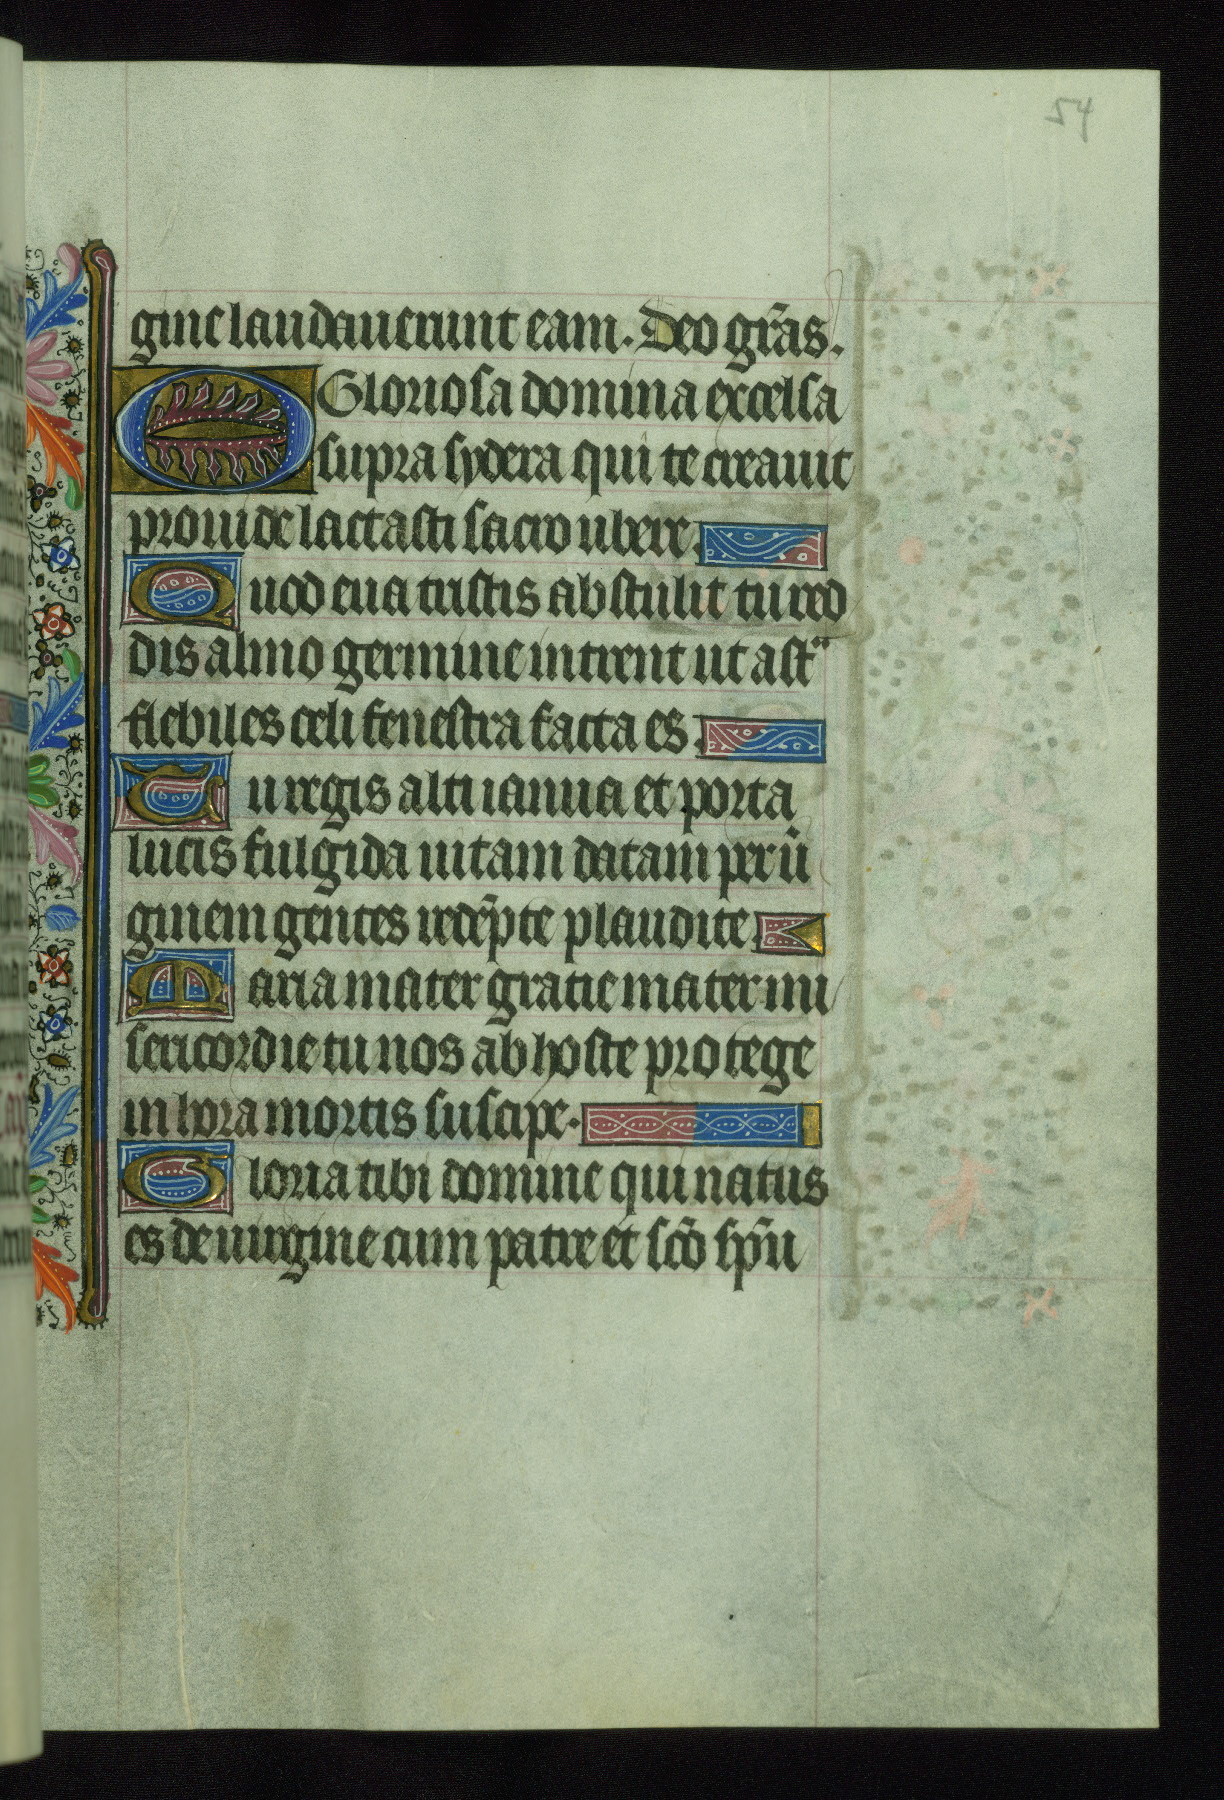 54
gine laudauerunt eam. Deo gr̃as.
O Gloriosa domina excelsa
supra sydera qui te creauit
prouide lactasti sacro ubere.
Quod eua tristis abstulit tu red
dis almo germine intrent ut astᵃ
flebiles celi fenestra facta es.
Tu regis alti ianua et porta
lucis fulgida uitam datam per uĩ
ginem gentes redẽpte plaudite.
Maria mater gratie mater mi
sericordie tu nos ab hoste protege
in hora mortis suscipe.
Gloria tibi domine qui natus
es de uirgine cum patre et sc̃o sp̃u